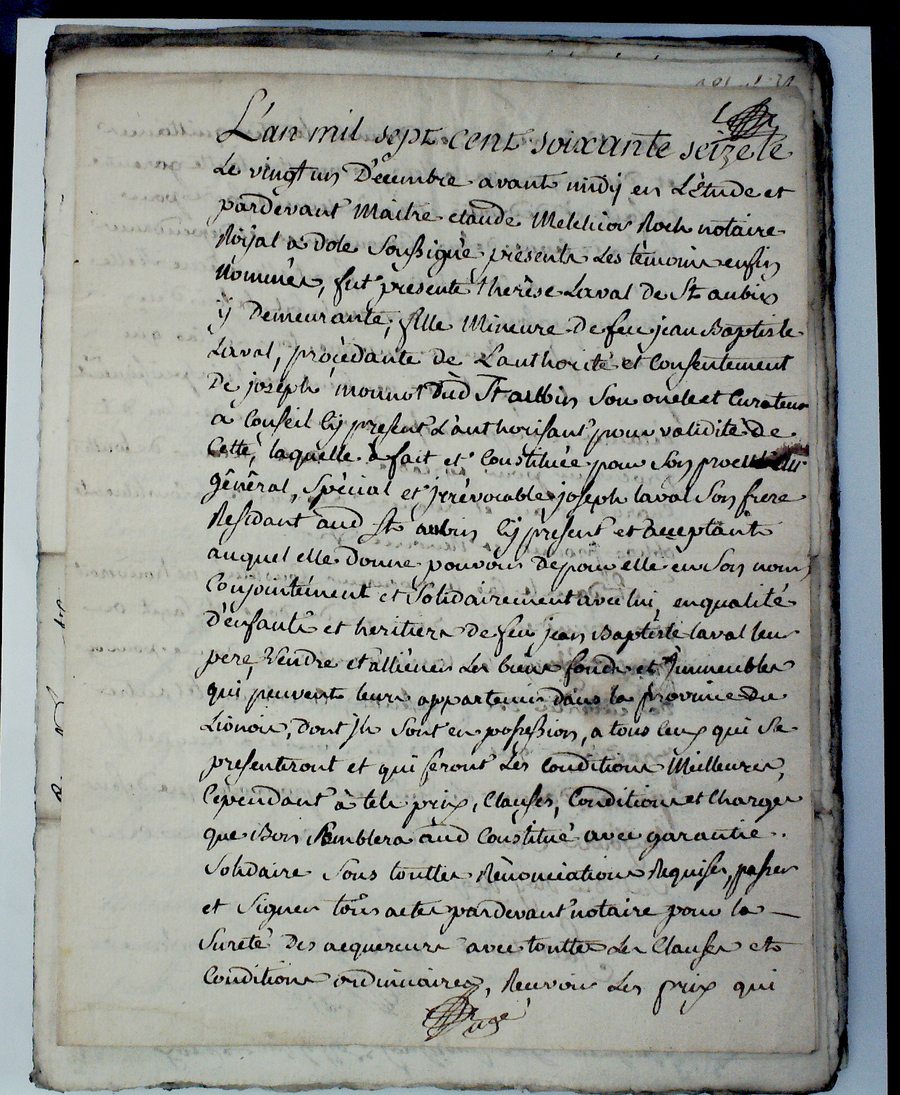 L'an mil sept cent soixante seize le
Le vingt un Decembre avant midÿ en L'Etude et
pardevant Maitre claude Melchior Roch notaire
Roÿal a Dole Soussigné presents Les tèmoins enfin
Nommés, fut presente thérèse Laval de St aubin
ÿ Demeurante, fille Mineure De feu jean Baptiste
Laval, procèdante de L'authorité et Consentement
De joseph monnot dud St aubin Son oncle et Curateur
a Conseil Cÿ present L'authorisant pour validité de
Cette, laquelle à fait et Constituée pour Son
général, Spécial et jrrévocable joseph laval Son frere
Residant aud St aubin Cÿ present et acceptant
auquel elle donne pouvoir de pour elle en Son nom
Conjointèment et Solidairement avec lui, en qualité
D'enfants et heritiers de feu jean Baptiste laval leur
pere, Vendre et alliéner Les biens fonds et Jmmeubles
qui peuvent leurs appartenir dans la province du
Lionois, dont jls Sont en possession, a tous Ceux qui Se
presentiront et qui feront Les Conditions Meilleures,
Cependant à tels prix, Clauses, Conditions et Charges
que Bon Semblera aud Constitué avec garantie
Solidaire Sous touttes Rènonciations Requises, passer
et Signer tous actes pardevant notaire pour la
Sureté Des acquereurs avec touttes Les Clauses et
Conditions ordinaires, Recevoir Les prix qui